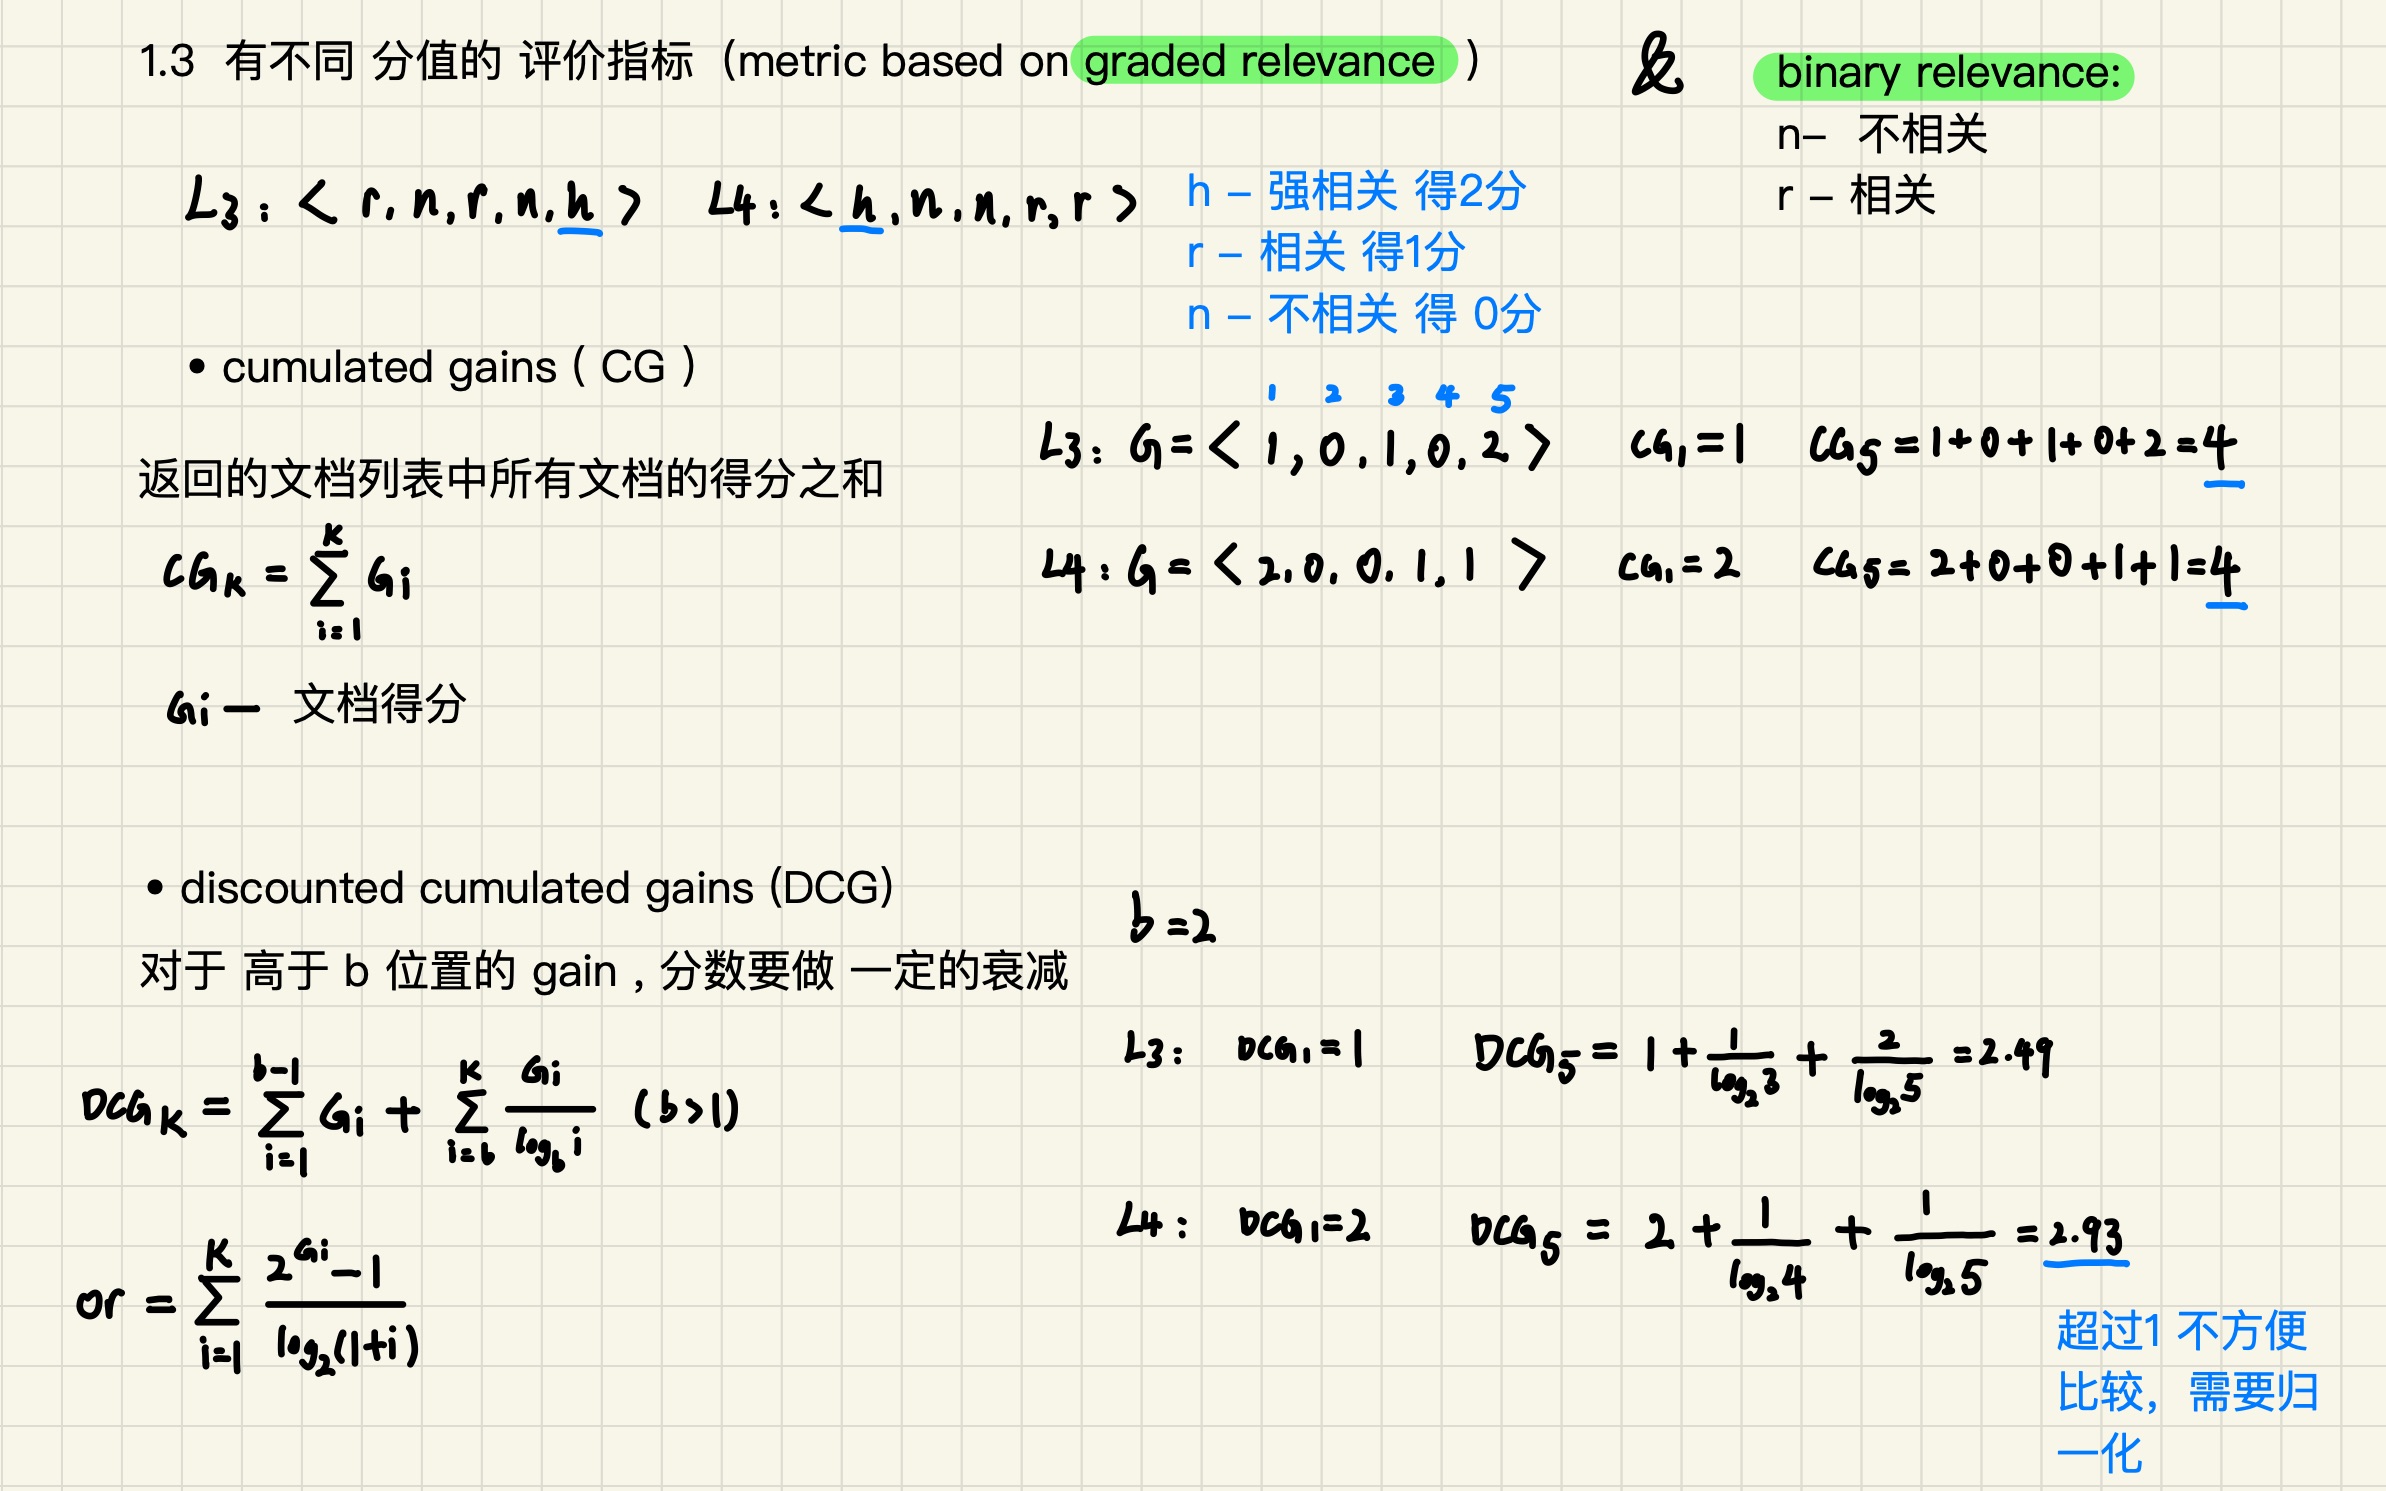 1.3 有不同 分值的 评价指标 (metric based on graded relevance ) & binary relevance:
n– 不相关
r – 相关
L3: < r, n, r, n, h > L4: < h, n, n, r, r >
h – 强相关 得2分
r – 相关 得1分
n – 不相关 得 0分
• cumulated gains ( CG )
返回的文档列表中所有文档的得分之和
CG_K = ∑_{i=1}^{K} G_i
G_i — 文档得分
1 2 3 4 5
L3: G = < 1, 0, 1, 0, 2 > CG_1 = 1 CG_5 = 1+0+1+0+2 = 4
L4: G = < 2, 0, 0, 1, 1 > CG_1 = 2 CG_5 = 2+0+0+1+1 = 4
• discounted cumulated gains (DCG)
对于 高于 b 位置的 gain , 分数要做 一定的衰减
DCG_K = ∑_{i=1}^{b-1} G_i + ∑_{i=b}^{K} G_i / log_b i (b>1)
or = ∑_{i=1}^{K} (2^{G_i} - 1) / log_2(1+i)
b = 2
L3: DCG_1 = 1 DCG_5 = 1 + 1/log_2 3 + 2/log_2 5 = 2.49
L4: DCG_1 = 2 DCG_5 = 2 + 1/log_2 4 + 1/log_2 5 = 2.93
超过1 不方便
比较，需要归
一化